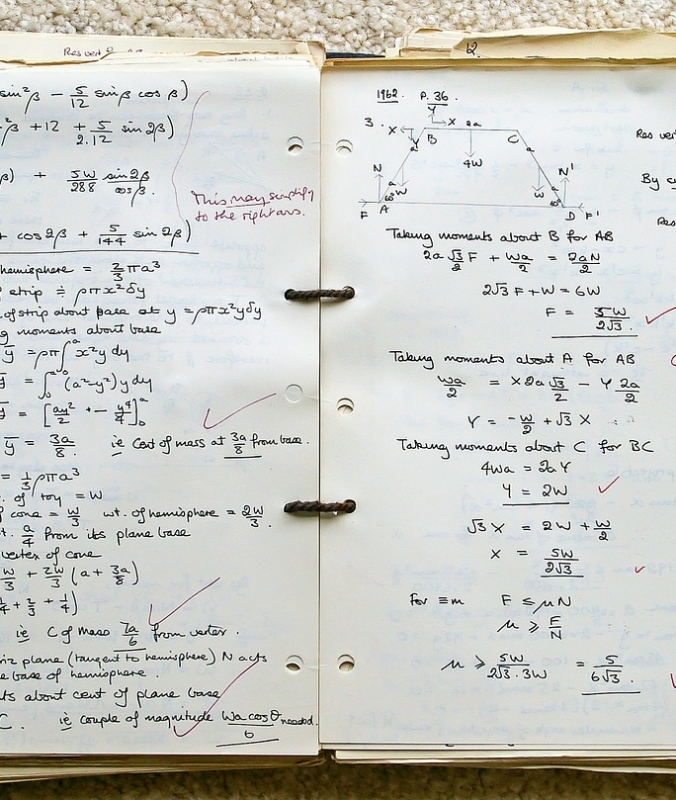 Res vert
sin²β − 5/12 sinβ cosβ)
²β + 12 + 5/2.12 sin 2β)
β) + 5W/288 sin2β/cosβ.
This may simplify
to the right ans.
+ cos2β + 5/144 sin 2β)
hemisphere = 2/3 πa³
strip ≑ ρπx²δy
of strip about base at y = ρπx²yδy
g moments about base
ȳ = ρπ∫₀ᵃ x²y dy
ȳ = ∫₀ᵃ (a²−y²)y dy
ȳ = [ay²/2 + − y⁴/4]₀ᵃ
ȳ = 3a/8. ie Cent of mass at 3a/8 from base.
= 1/3 ρπa³
. of toy = W
f cone = W/3 wt. of hemisphere = 2W/3.
t. a/4 from its plane base
vertex of cone
W/3 + 2W/3 (a + 3a/8)
/4 + 2/3 + 1/4)
ie C of mass 7a/6 from vertex.
riz plane (tangent to hemisphere) N acts
e base of hemisphere.
ts about cent of plane base
C. ie couple of magnitude Wa cosθ/6 needed.
12.
1962. P. 36.
3.
Y
X 2a
X
Y B C
a a
4W
N N'
a a
W W
60° 60°
F A D F'
Taking moments about B for AB
2a√3/2 F + Wa/2 = 2aN/2
2√3 F + W = 6W
F = 5W/2√3.
Taking moments about A for AB
Wa/2 = X 2a√3/2 − Y 2a/2
Y = −W/2 + √3 X
Taking moments about C for BC
4Wa = 2aY
Y = 2W
√3 X = 2W + W/2
X = 5W/2√3
For ≡m F ≤ μN
μ ≥ F/N
μ ≥ 5W/2√3.3W = 5/6√3.
Res ver
By c
Res